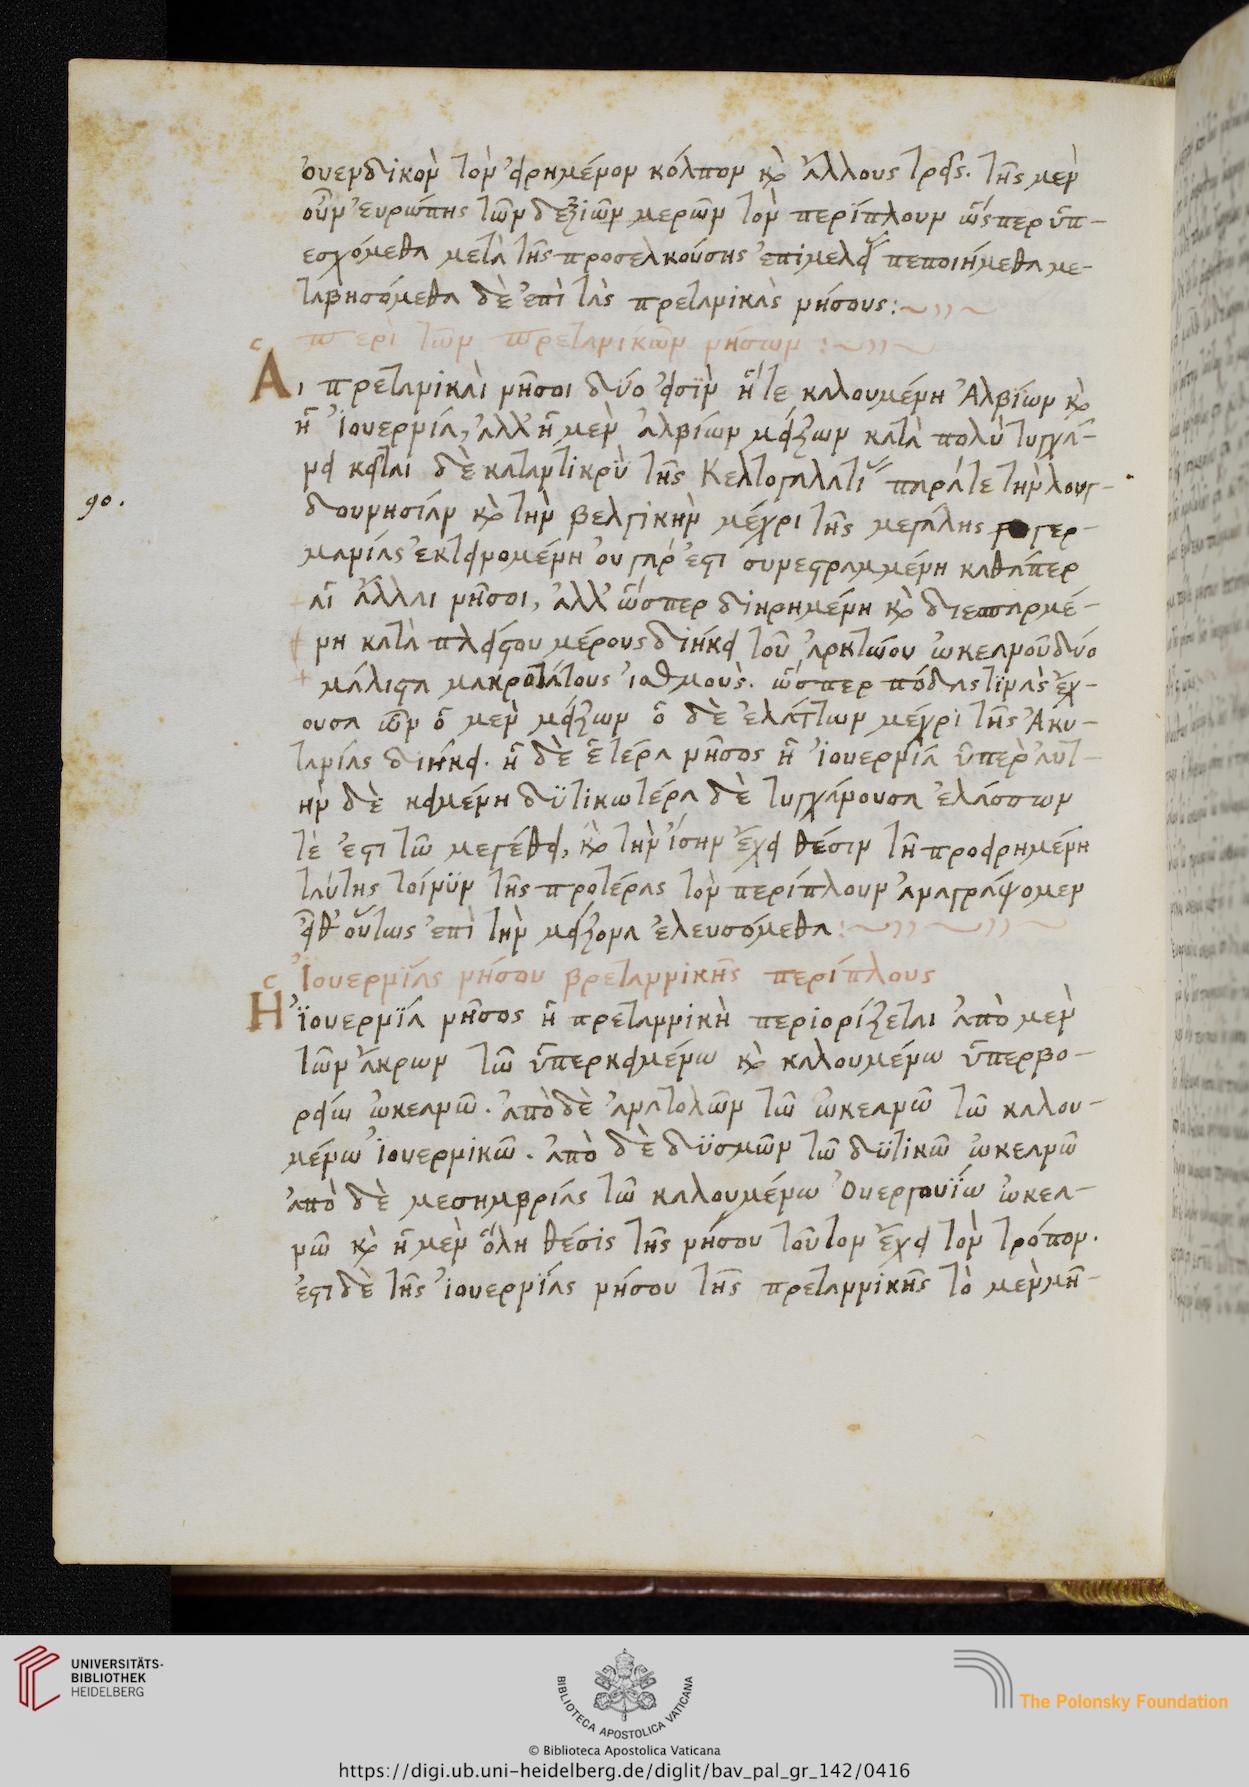 ὀυενδικὸν τὸν εἰρημένον κόλπον κὶ ἄλλους τρεῖς. τῆς μὲν
οὖν ἐυρώπης τῶν δεξιῶν μερῶν τὸν περίπλουν ὥσπερ ὑπ-
εσχόμεθα μετὰ τῆς προσελκούσης ἐπιμελείας πεποιήμεθα με-
ταβησόμεθα δὲ ἐπὶ τὰς πρετανικὰς νήσους:~
περὶ τῶν πρετανικῶν νήσων :~
Αι πρετανικαὶ νῆσοι δύο εἰσὶν ἥ τε καλουμένη Ἀλβίων κὶ
ἡ Ἰουερνία, ἀλλ' ἡ μὲν ἀλβίων μείζων κατὰ πολὺ τυγχά-
νει κεῖται δὲ καταντικρὺ τῆς Κελτογαλατίας παρά τε τὴν λουγ-
90.
δουνησίαν κὶ τὴν βελγικὴν μέχρι τῆς μεγάλης γερ-
μανίας ἐκτεινομένη ὀυ γάρ ἐστι συνεστραμμένη καθάπερ
αἱ ἄλλαι νῆσοι, ἀλλ' ὥσπερ διηρημένη κὶ διεσπαρμέ-
νη κατὰ πλείστου μέρους διήκει τοῦ ἀρκτώου ὠκεανοῦ δύο
μάλιστα μακροτάτους ἰσθμοὺς. ὥσπερ πόδας τινὰς ἔχ-
ουσα ὧν ὁ μὲν μείζων ὁ δὲ ἐλάττων μέχρι τῆς Ἀκυ-
τανίας διήκει. ἡ δὲ ἑτέρα νῆσος ἡ ἰουερνία ὑπὲρ ἀυτ-
ὴν δὲ κειμένη δϋτικωτέρα δὲ τυγχάνουσα ἐλάσσων
τέ ἐστι τῶ μεγέθει, κὶ τὴν ἴσην ἔχει θέσιν τῆ προειρημένη
ταύτης τοίνϋν τῆς προτέρας τὸν περίπλουν ἀναγράψομεν
εἶθ' οὕτως ἐπὶ τὴν μείζονα ἐλευσόμεθα :~
Ἰουερνίας νήσου βρεταννικῆς περίπλους
Η ἰουερνία νῆσος ἡ πρεταννικὴ περιορίζεται ἀπὸ μὲν
τῶν ἄκρων τῶ ὑπερκειμένω κὶ καλουμένω ὑπερβο-
ρείω ὠκεανῶ. ἀπὸ δὲ ἀνατολῶν τῶ ὠκεανῶ τῶ καλου-
μένω ἰουερνικῶ. ἀπὸ δὲ δϋσμῶν τῶ δϋτικῶ ὠκεανῶ
ἀπὸ δὲ μεσημβρίας τῶ καλουμένω Ὀυεργουΐω ὠκεα-
νῶ κὶ ἡ μὲν ὅλη θέσις τῆς νήσου τοῦτον ἔχει τὸν τρόπον.
ἔστι δὲ τῆς ἰουερνίας νήσου τῆς πρεταννικῆς τὸ μὲν μῆ-
UNIVERSITÄTS-
BIBLIOTHEK
HEIDELBERG
BIBLIOTECA APOSTOLICA VATICANA
The Polonsky Foundation
© Biblioteca Apostolica Vaticana
https://digi.ub.uni-heidelberg.de/diglit/bav_pal_gr_142/0416